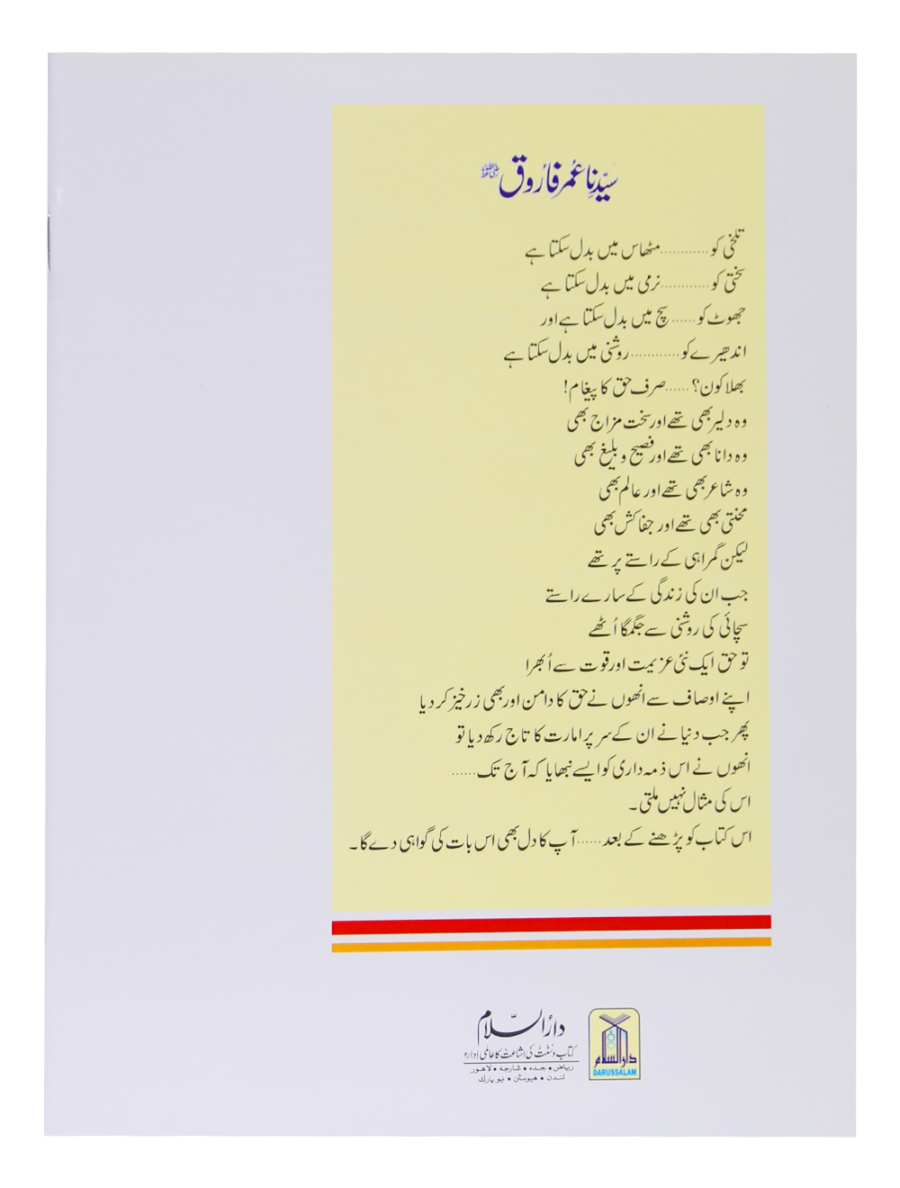 سیّدنا عُمر فارُوق رضی اللہ عنہ
تلخی کو............مٹھاس میں بدل سکتا ہے
سختی کو............نرمی میں بدل سکتا ہے
جھوٹ کو......سچ میں بدل سکتا ہے اور
اندھیرے کو............روشنی میں بدل سکتا ہے
بھلا کون؟......صرف حق کا پیغام!
وہ دلیر بھی تھے اور سخت مزاج بھی
وہ دانا بھی تھے اور فصیح و بلیغ بھی
وہ شاعر بھی تھے اور عالم بھی
محنتی بھی تھے اور جفاکش بھی
لیکن گمراہی کے راستے پر تھے
جب ان کی زندگی کے سارے راستے
سچائی کی روشنی سے جگمگا اُٹھے
تو حق ایک نئی عزیمت اور قوت سے اُبھرا
اپنے اوصاف سے انھوں نے حق کا دامن اور بھی زرخیز کر دیا
پھر جب دنیا نے ان کے سر پر امارت کا تاج رکھ دیا تو
انھوں نے اس ذمہ داری کو ایسے نبھایا کہ آج تک......
اس کی مثال نہیں ملتی۔
اس کتاب کو پڑھنے کے بعد......آپ کا دل بھی اس بات کی گواہی دے گا۔
دارُالسّلام
کتاب و سُنّت کی اشاعت کا عالمی اِدارہ
ریاض • جدہ • شارجہ • لاہور
لندن • ہیوسٹن • نیو یارک
دارالسلام
DARUSSALAM